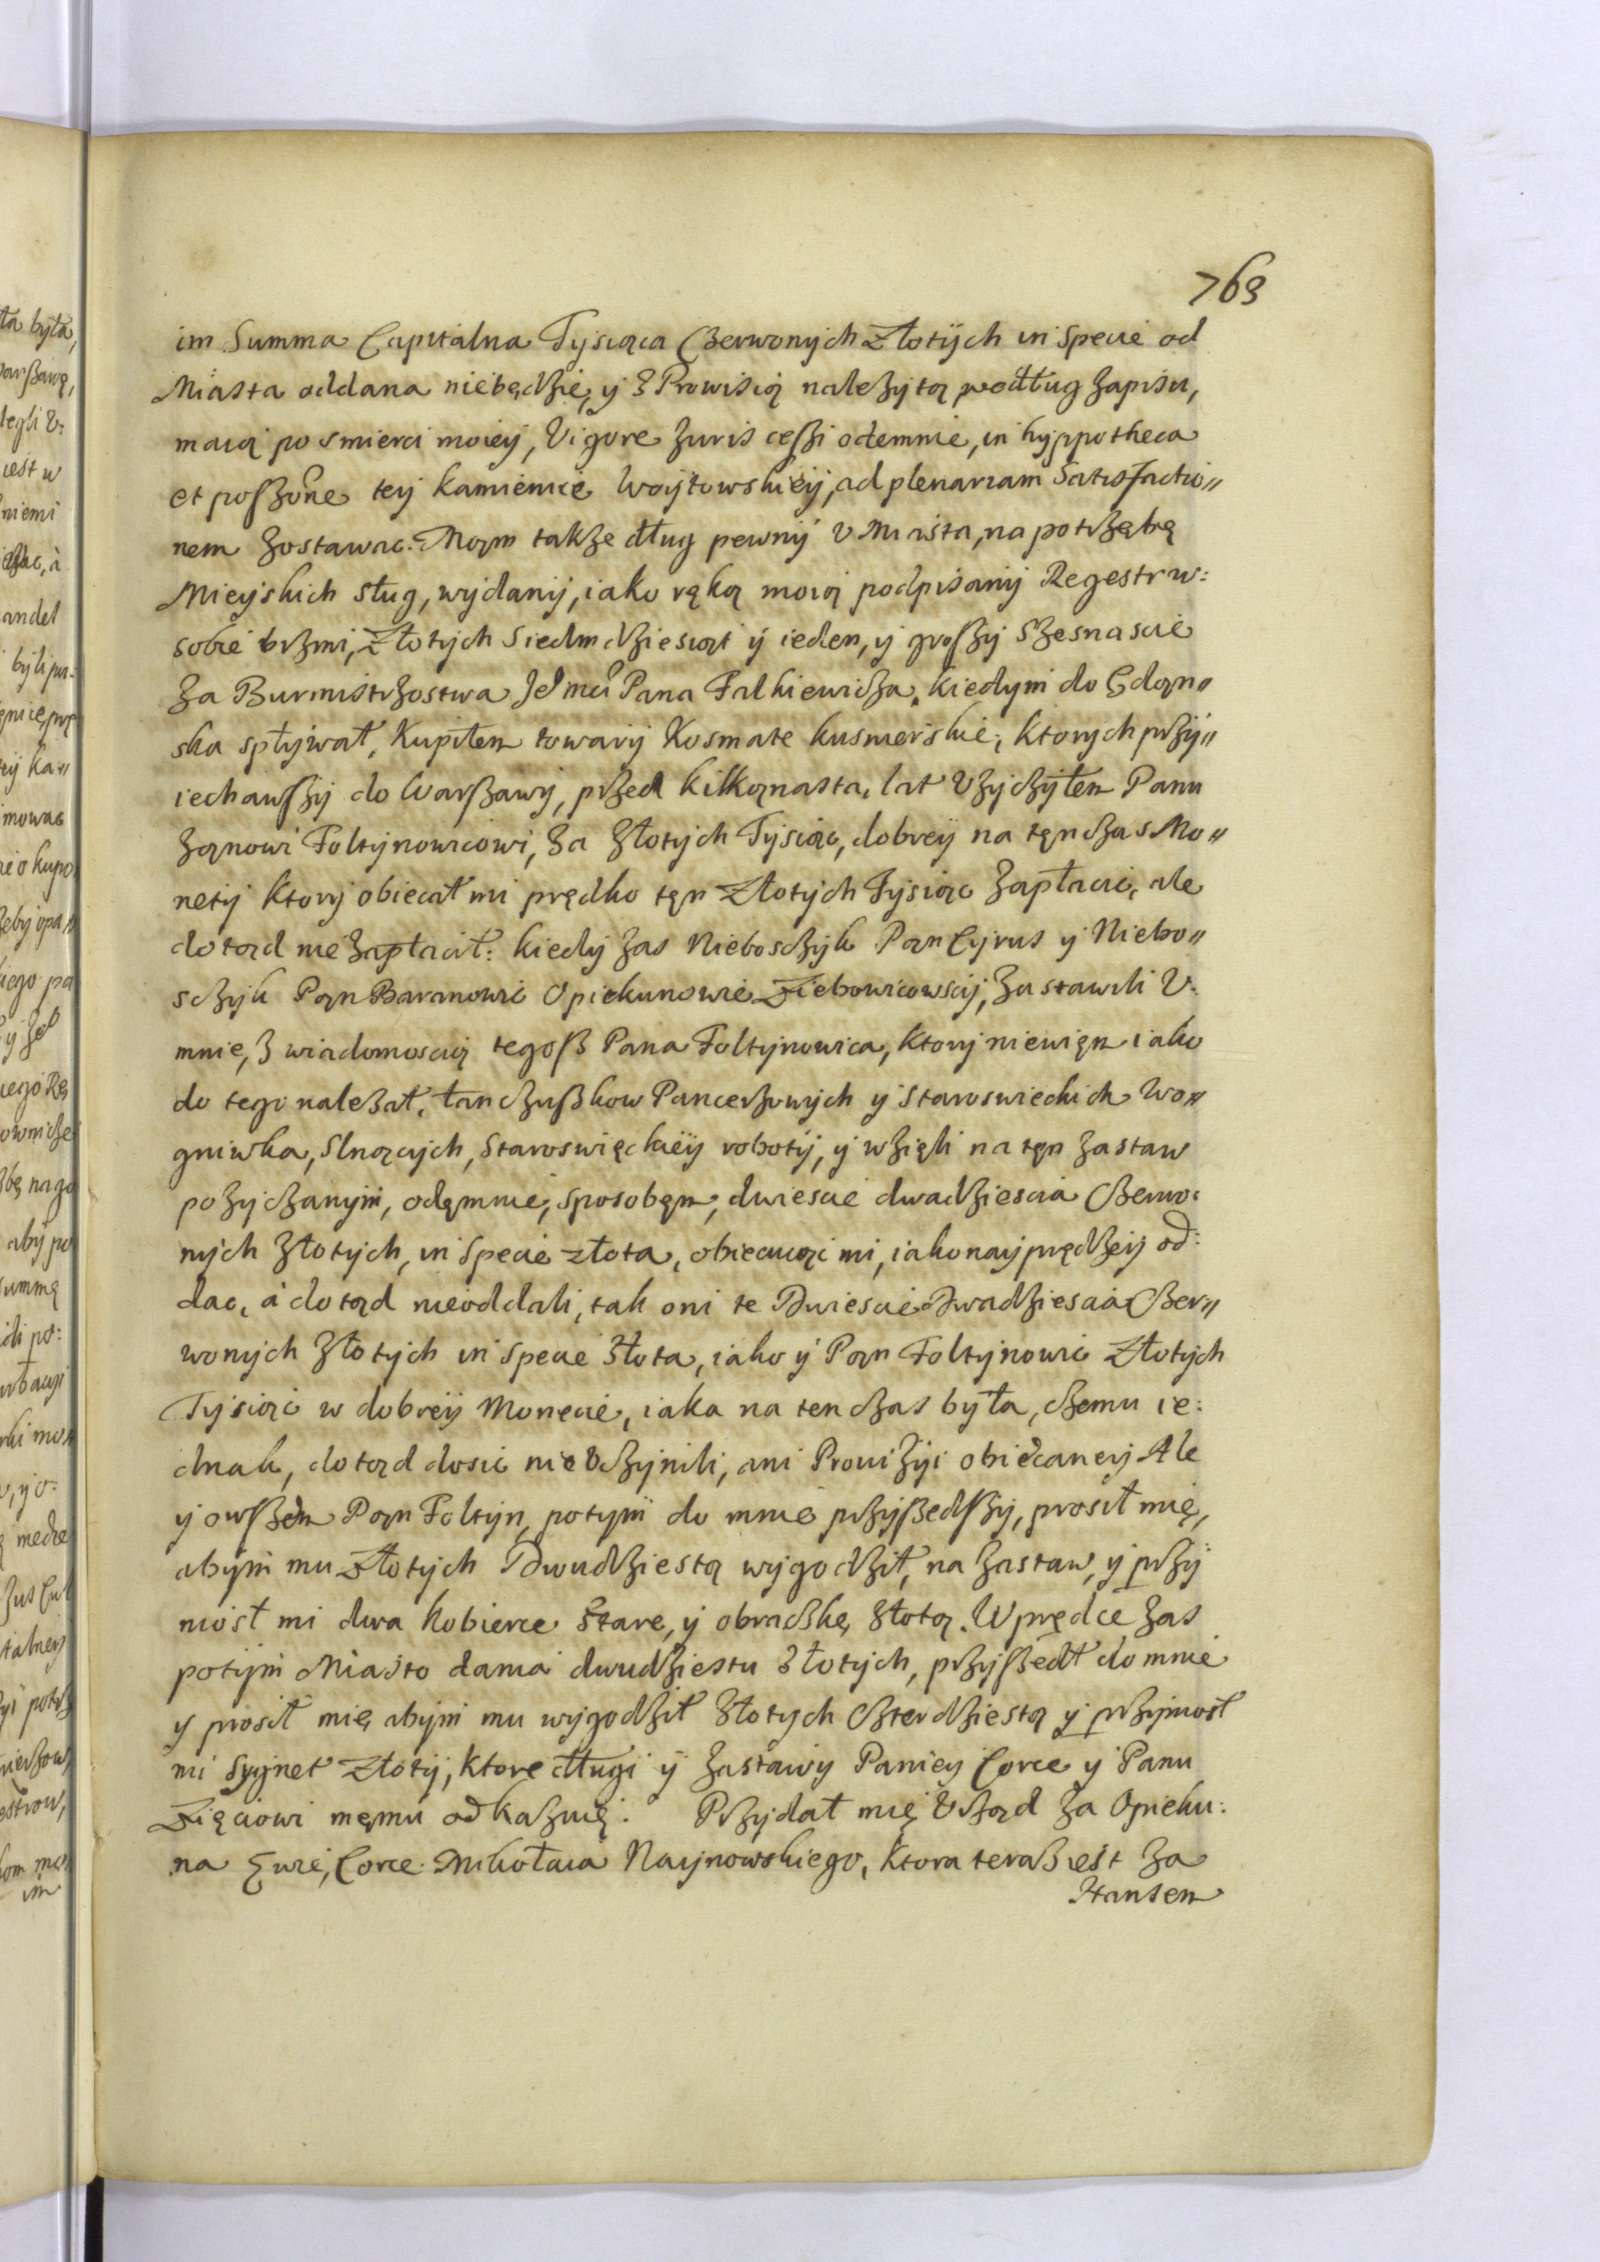 763
im Summa Capitalna Tysiąca Czerwonych Złotych in Specie od
Miasta oddana niebędzie, y z Prowisią należytą według zapisu,
maią po smierci moiey, Vigore Iuris cessi odemnie, in hyppotheca
et possone tey kamienice Woytowskiey, ad plenariam Satisfactio„
nem zostawac. Mąm także dług pewny v Miasta, na potrzębę
Mieyskich sług, wydany, iako ręką moią podpisany Regestr w:
sobie brzmi, Złotych Siedmdziesiąt y ieden, y groszy szesnascie
za Burmistrzostwa Je° mci Pana Falkiewicza. kiedym do Gdąn„
ska spływał, Kupiłem towary Kosmate kusnierskie, ktorych przy„
iechawszy do Warszawy, przed kilkąnastą, lat Vzyczyłem Panu
Janowi Foltynowicowi, za złotych Tysiąc, dobrey na tęn czas Mo„
nety ktory obiecał mi prędko tęn Złotych Tysiąc zapłacic, ale
dotąd nie zapłacił: kiedy zas Nieboszczyk Pąn Cyrus y Niebo„
szczyk Pąn Baranowic Opiekunowie Ziebowicowscy, zastawili V.
mnie, z wiadomoscią tegosz Pana Foltynowica, ktory niewięm iako
do tego należał, łanczuszkow Pancerzowych y Staroswieckich w o„
gniwka, Slnących, Staroswięckiey roboty, y wzięli na tęn zastaw
pozyczanym, odęmnie, sposobęm, dwiescie dwadziescia Czerwo:
nych złotych, in Specie złota, obiecuiąc mi, iako nayprędzey od:
dac, a dotąd nieoddali, tak oni te Dwiescie Dwadziescia Czer„
wonych złotych in Specie złota, iako y Pąn Foltynowic Złotych
Tysiąc w dobrey Monęcie, iaka na ten czas była, czemu ie:
dnak, dotąd dosic nie Vczynili, ani Prowizyi obiecaney Ale
y owszem Pąn Foltyn, potym do mnie przyszedszy, prosił mię,
abym mu Złotych Dwudziestą wygodził, na zastaw, y przy
niosł mi dwa kobierce stare, y obraczkę złotą. Wprędce zas
potym Miasto dania dwudziestu złotych, przyszedł do mnie
y prosił mię abym mu wygodził złotych czterdziestą y przyniosł
mi sygnet złoty, ktore długi y zastawy Paniey Corce y Panu
Zięciowi męmu odkazuię. Przydał mię Vrząd za Opieku:
na Ewie, Corce Mikołaia Naynowskiego, ktora terasz iest za
Hansem